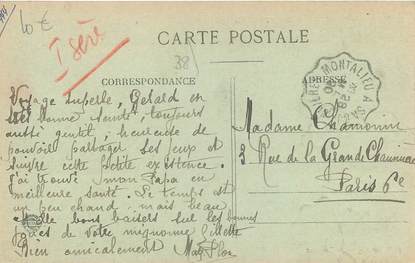 10 €
Isère
38
CARTE POSTALE
CORRESPONDANCE
ADRESSE
MONTALIEU A
Voyage superbe, Gérard en
bonne santé toujours
aussi gentil, heureuse de
pouvoir partager ses jeux et
cette petite existence.
J'ai trouvé mon Papa en
meilleure santé. Le temps est
un peu chaud, mais beau
bons baisers sur les bonnes
joues de votre mignonne Gillette
Bien amicalement
Madame Chamonin
3 Rue de la Grande Chaumière
Paris 6e